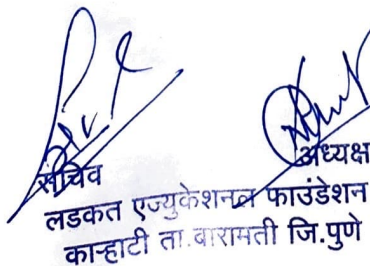 सचिव
अध्यक्ष
लडकत एज्युकेशनल फाउंडेशन
काऱ्हाटी ता.बारामती जि.पुणे